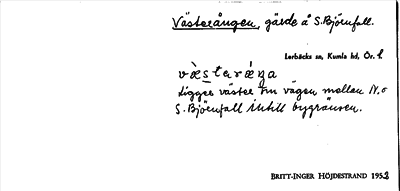 Västerången, gärde å S. Björnfall.
Lerbäcks sn, Kumla hd, Ör. l.
væ̀staráŋa
Ligger väster om vägen mellan N. o
S. Björnfall intill bygränsen.
BRITT-INGER HÖJDESTRAND 1952